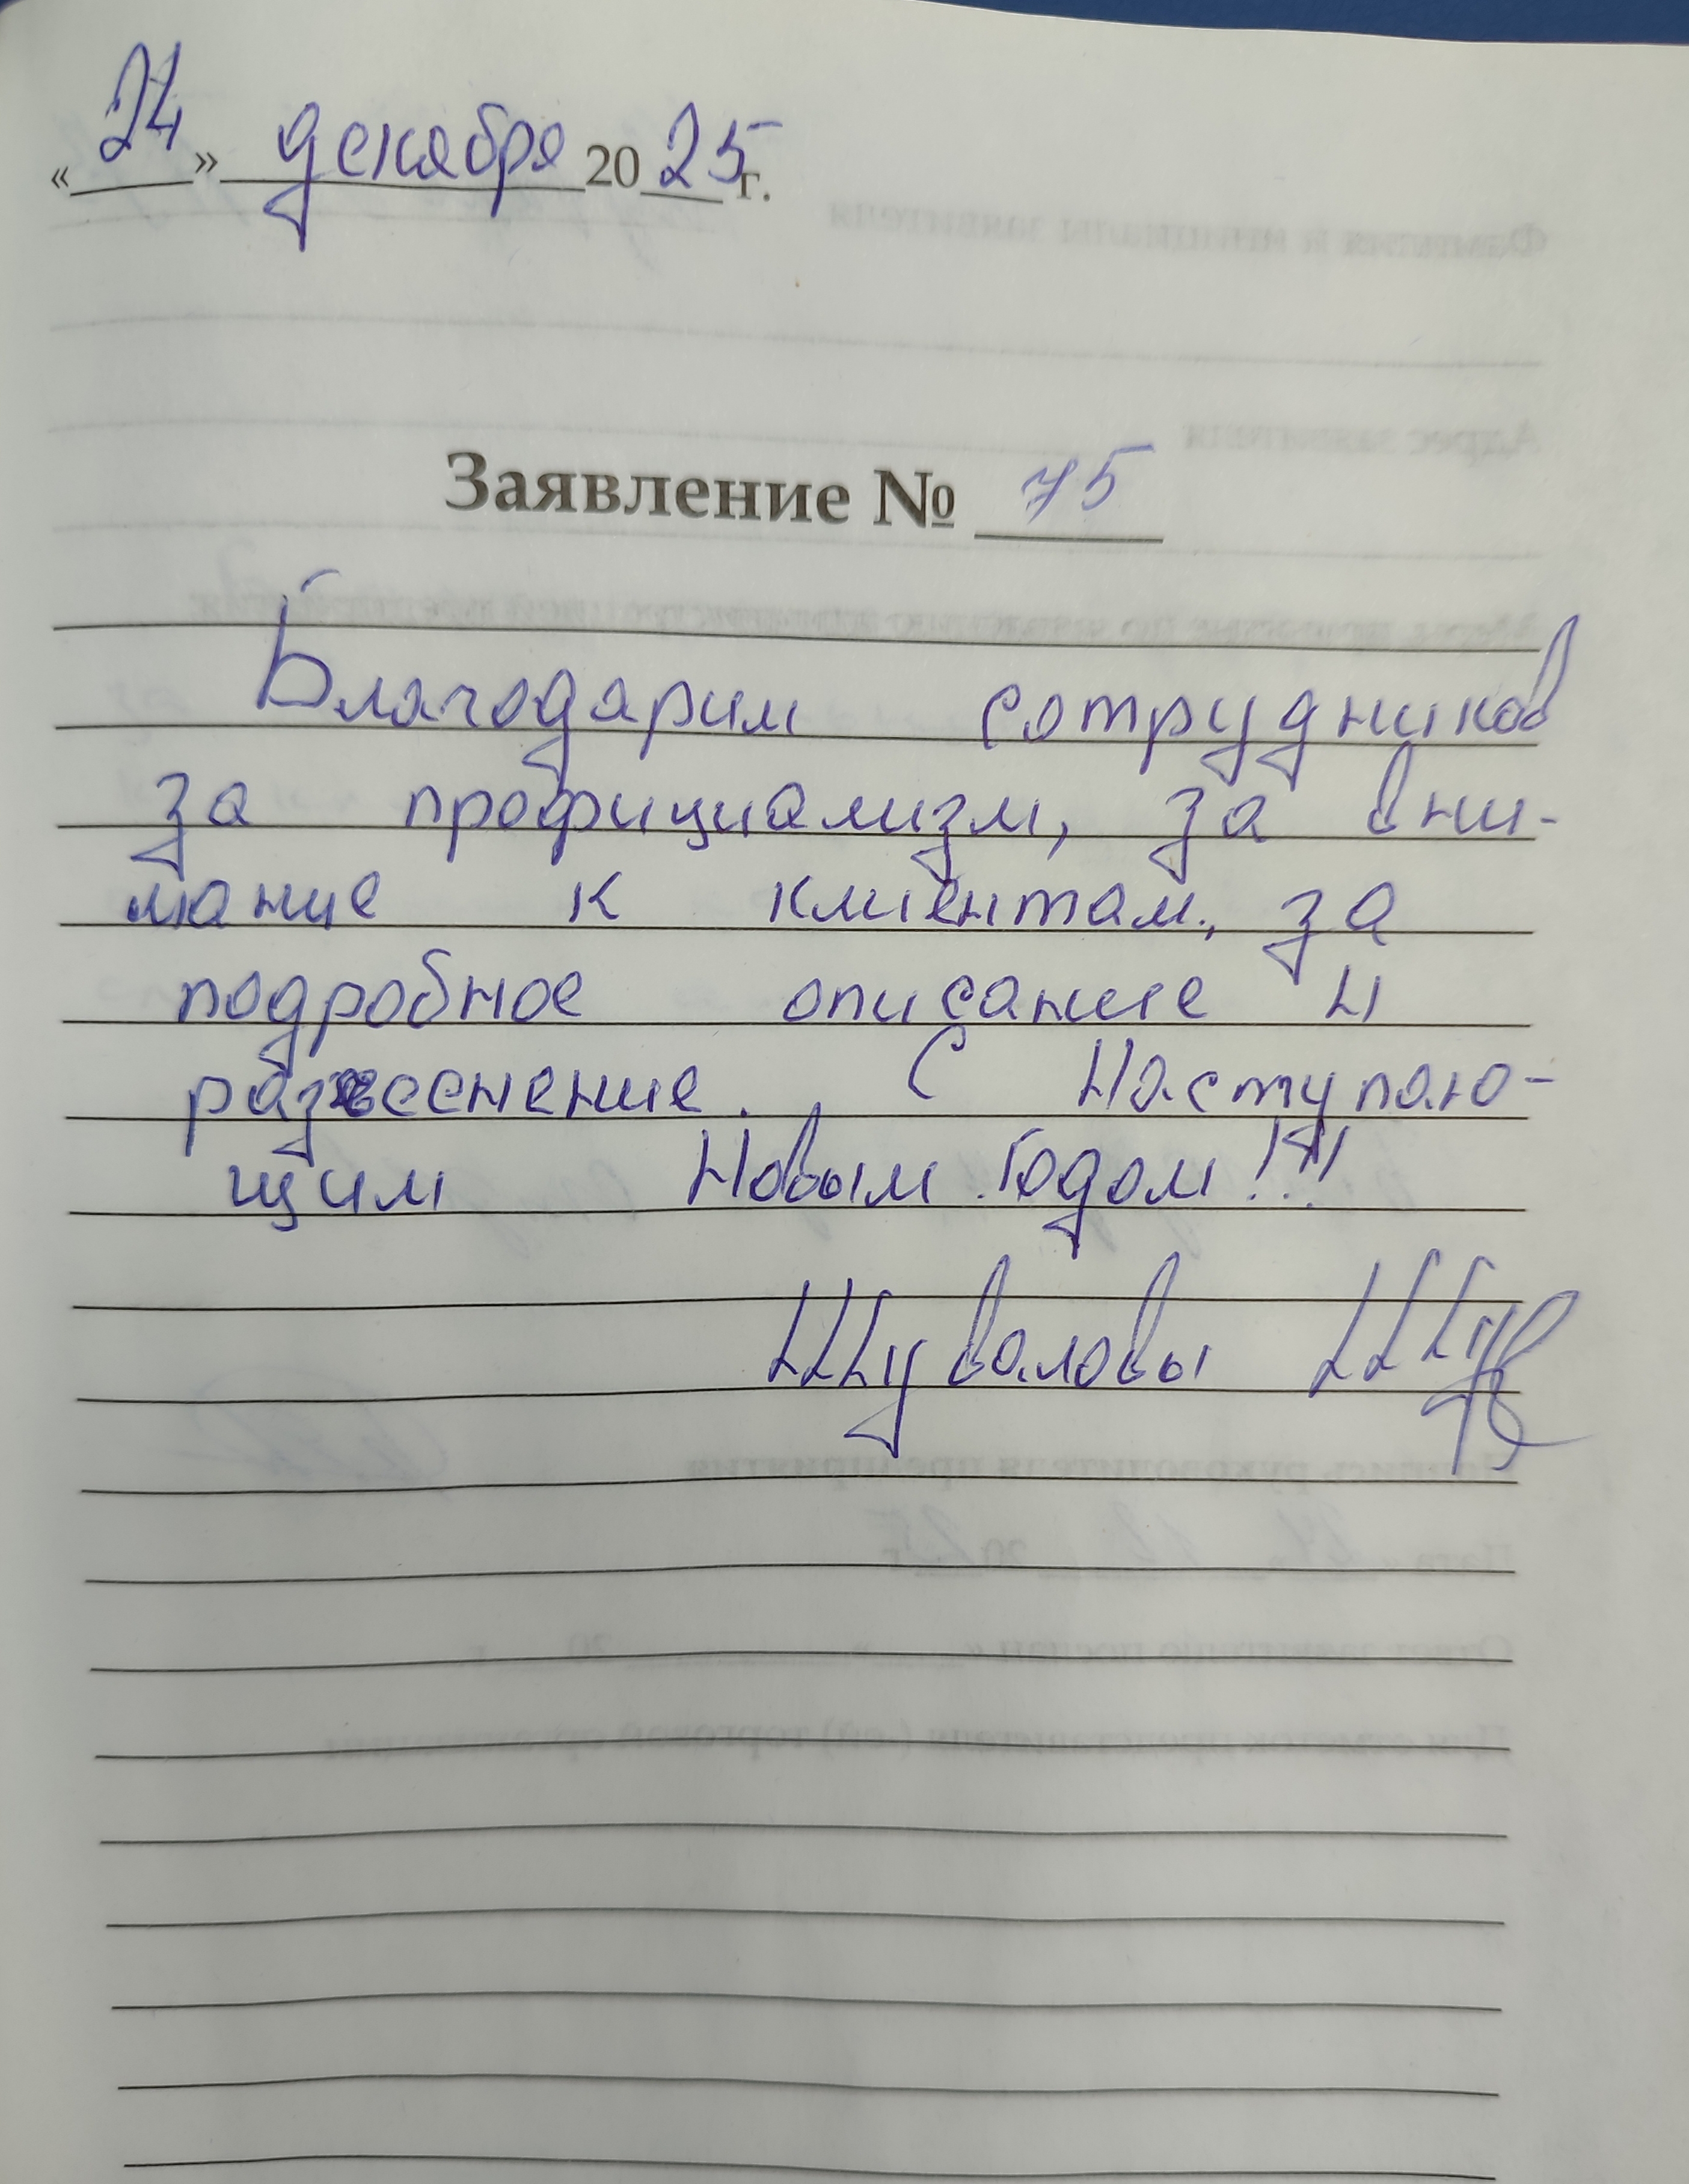 «24» декабря 2025 г.
Заявление № 75
Благодарим сотрудников
за профициализм, за вни-
мание к клиентам, за
подробное описание и
С Наступаю-
щим Новым годом!!!
Шуваловы